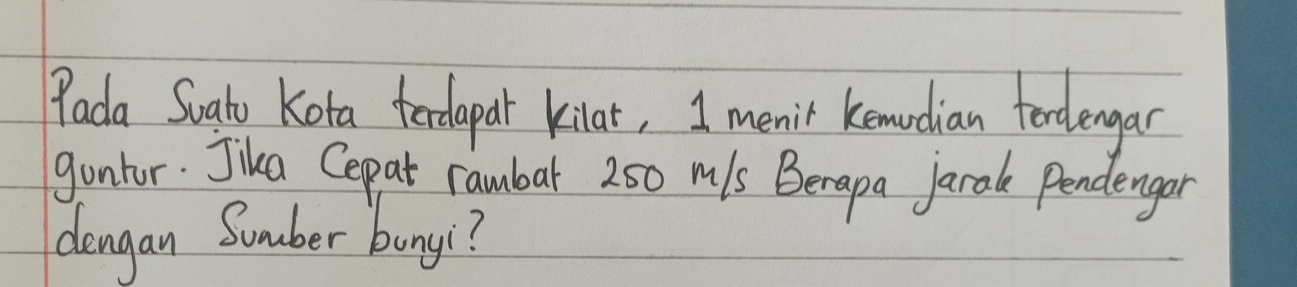 Pada Suatu Kota terdapat kilat, 1 menit kemudian terdengar
guntur. Jika Cepat rambat 250 m/s Berapa jarak Pendengar
dengan Sumber bunyi?